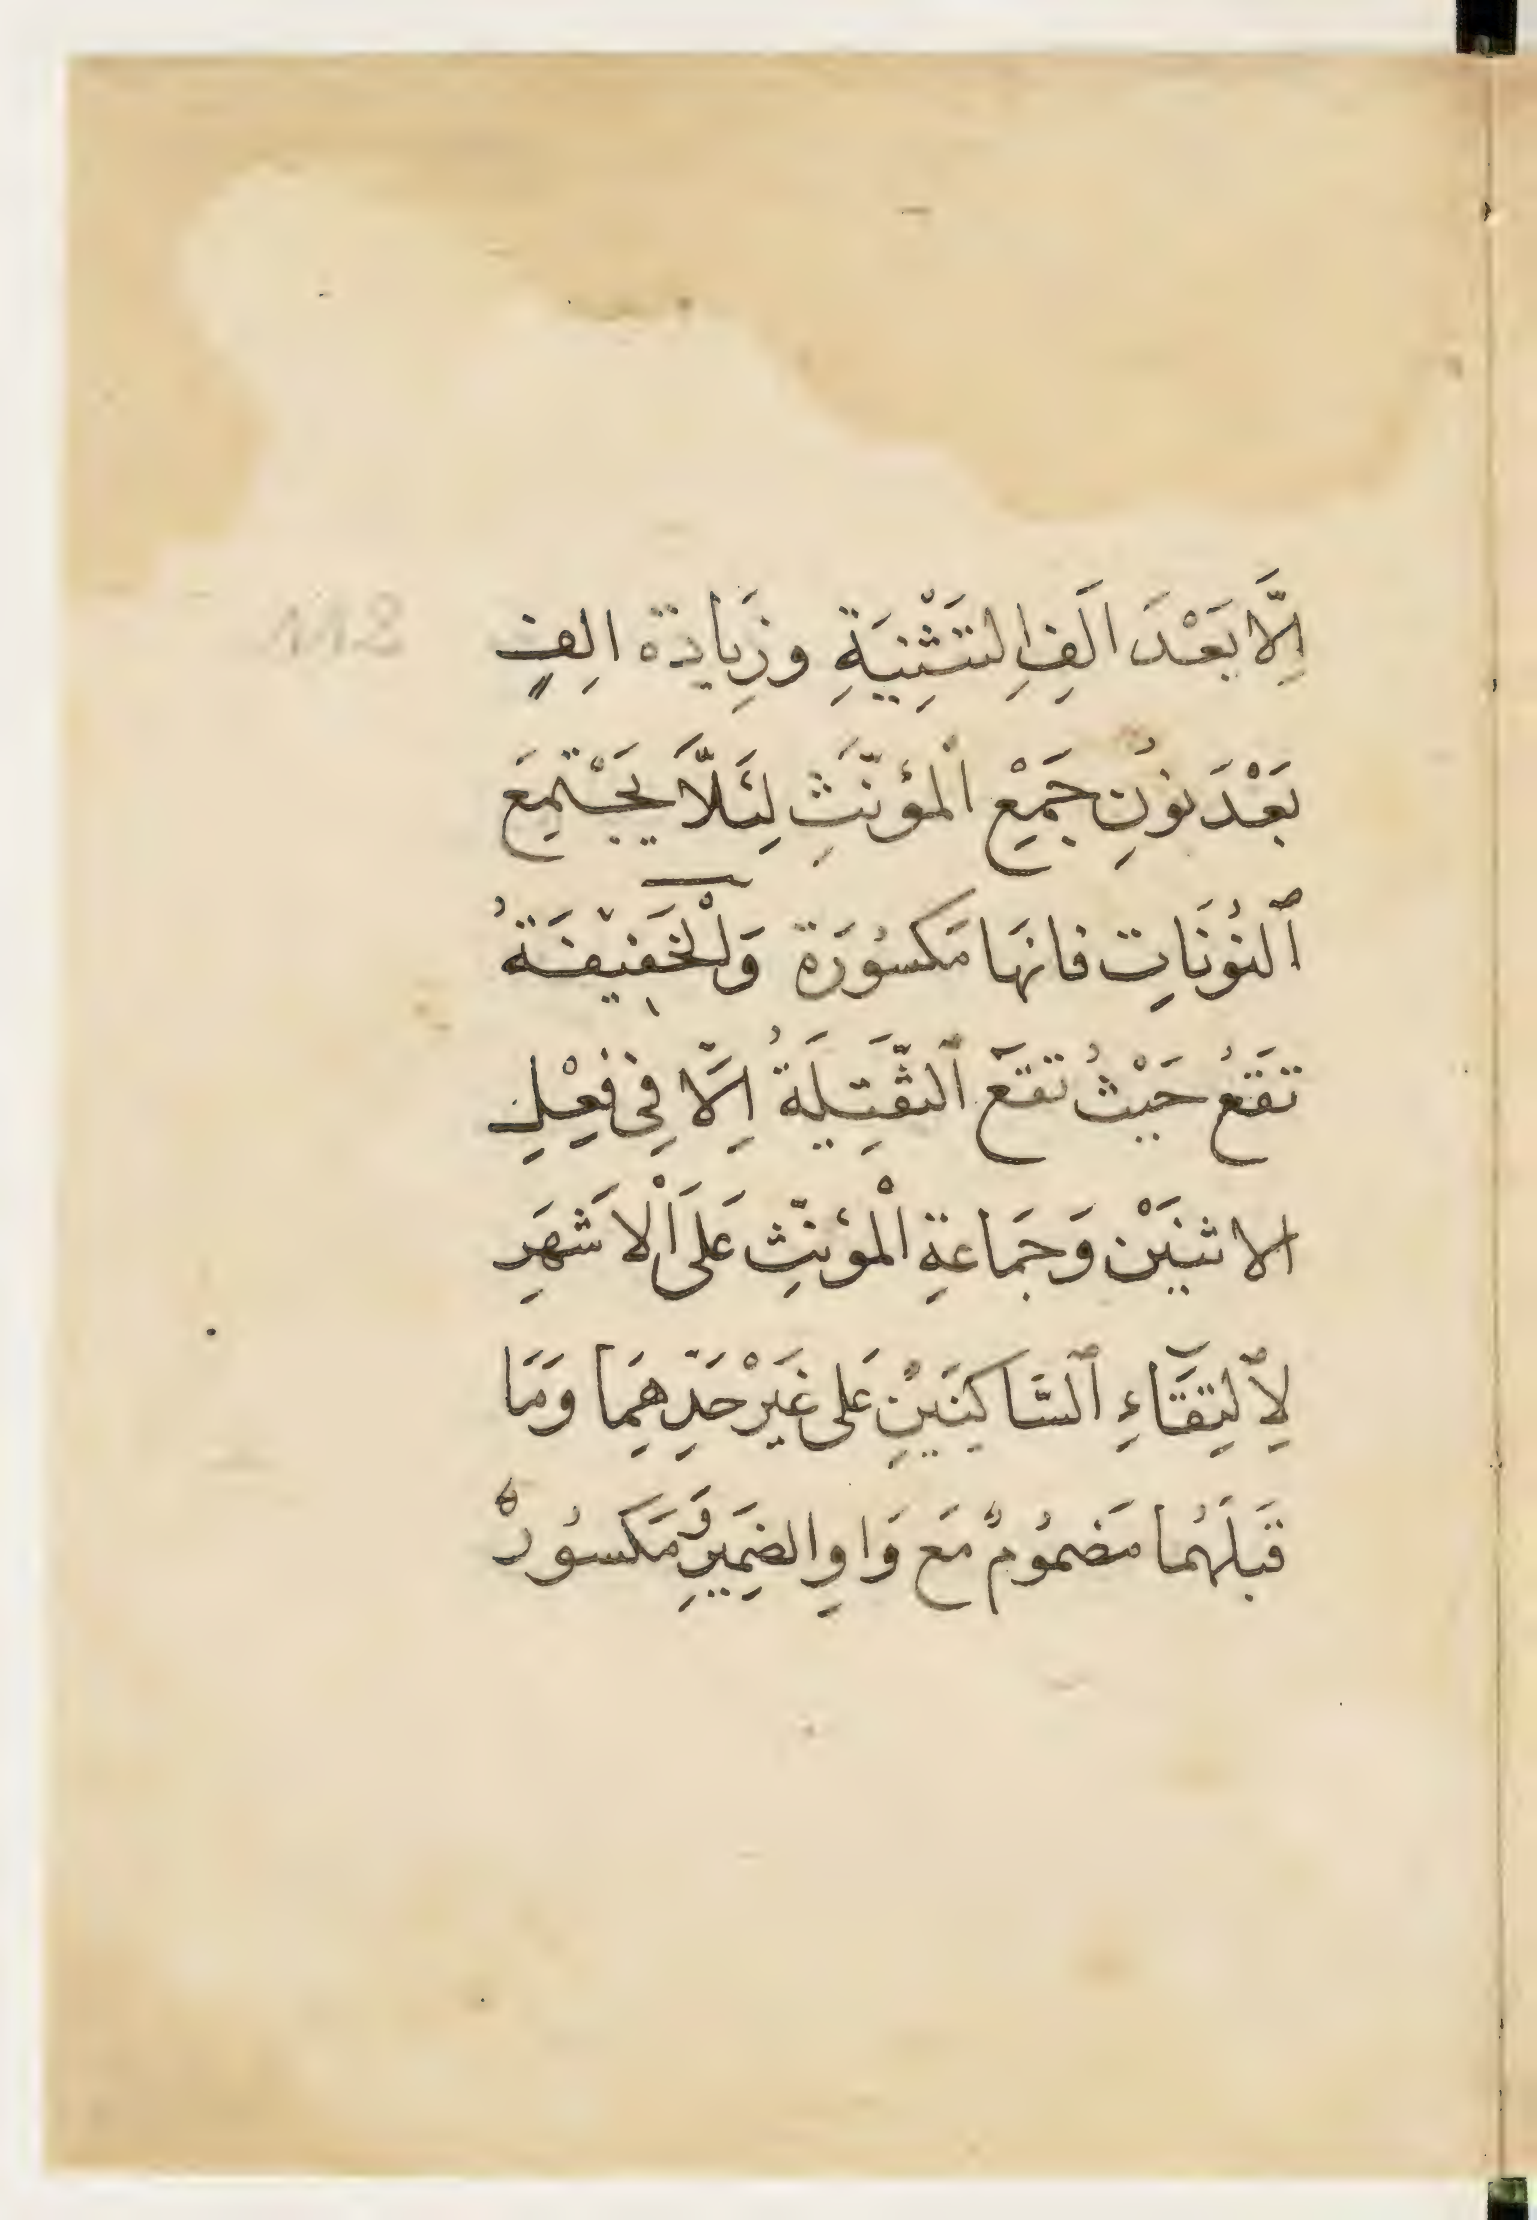 112
اِلَّا بَعْدَ الَفِ التَّثْنِيَةِ وزِيادة الِفٍ
بَعْدَ نوُنِ جَمْعِ الْمؤنَّثِ لِئَلَّا يَجْتمِعَ
ٱلنوُنَاتِ فانهَا مَكسوُرَة وَلْلخَفيْفَةُ
تَقَعُ حَيْثُ تقَعَ ٱلثَّقِيلَةُ اِلَّا فِى فِعْلِ
الاثنَيْن وَجَماعةِ الْمؤنّثِ عَلَى الْاَشْهَرِ
لِاْلتِقَآءِ ٱلسَّاكِنَيْنِ عَلى غَيْر حَدِّهِمَا وَمَا
قَبلَهُما مَضموُمٌ مَع وَاوِ الضَمِيرِ وَمَكسوُرٌ